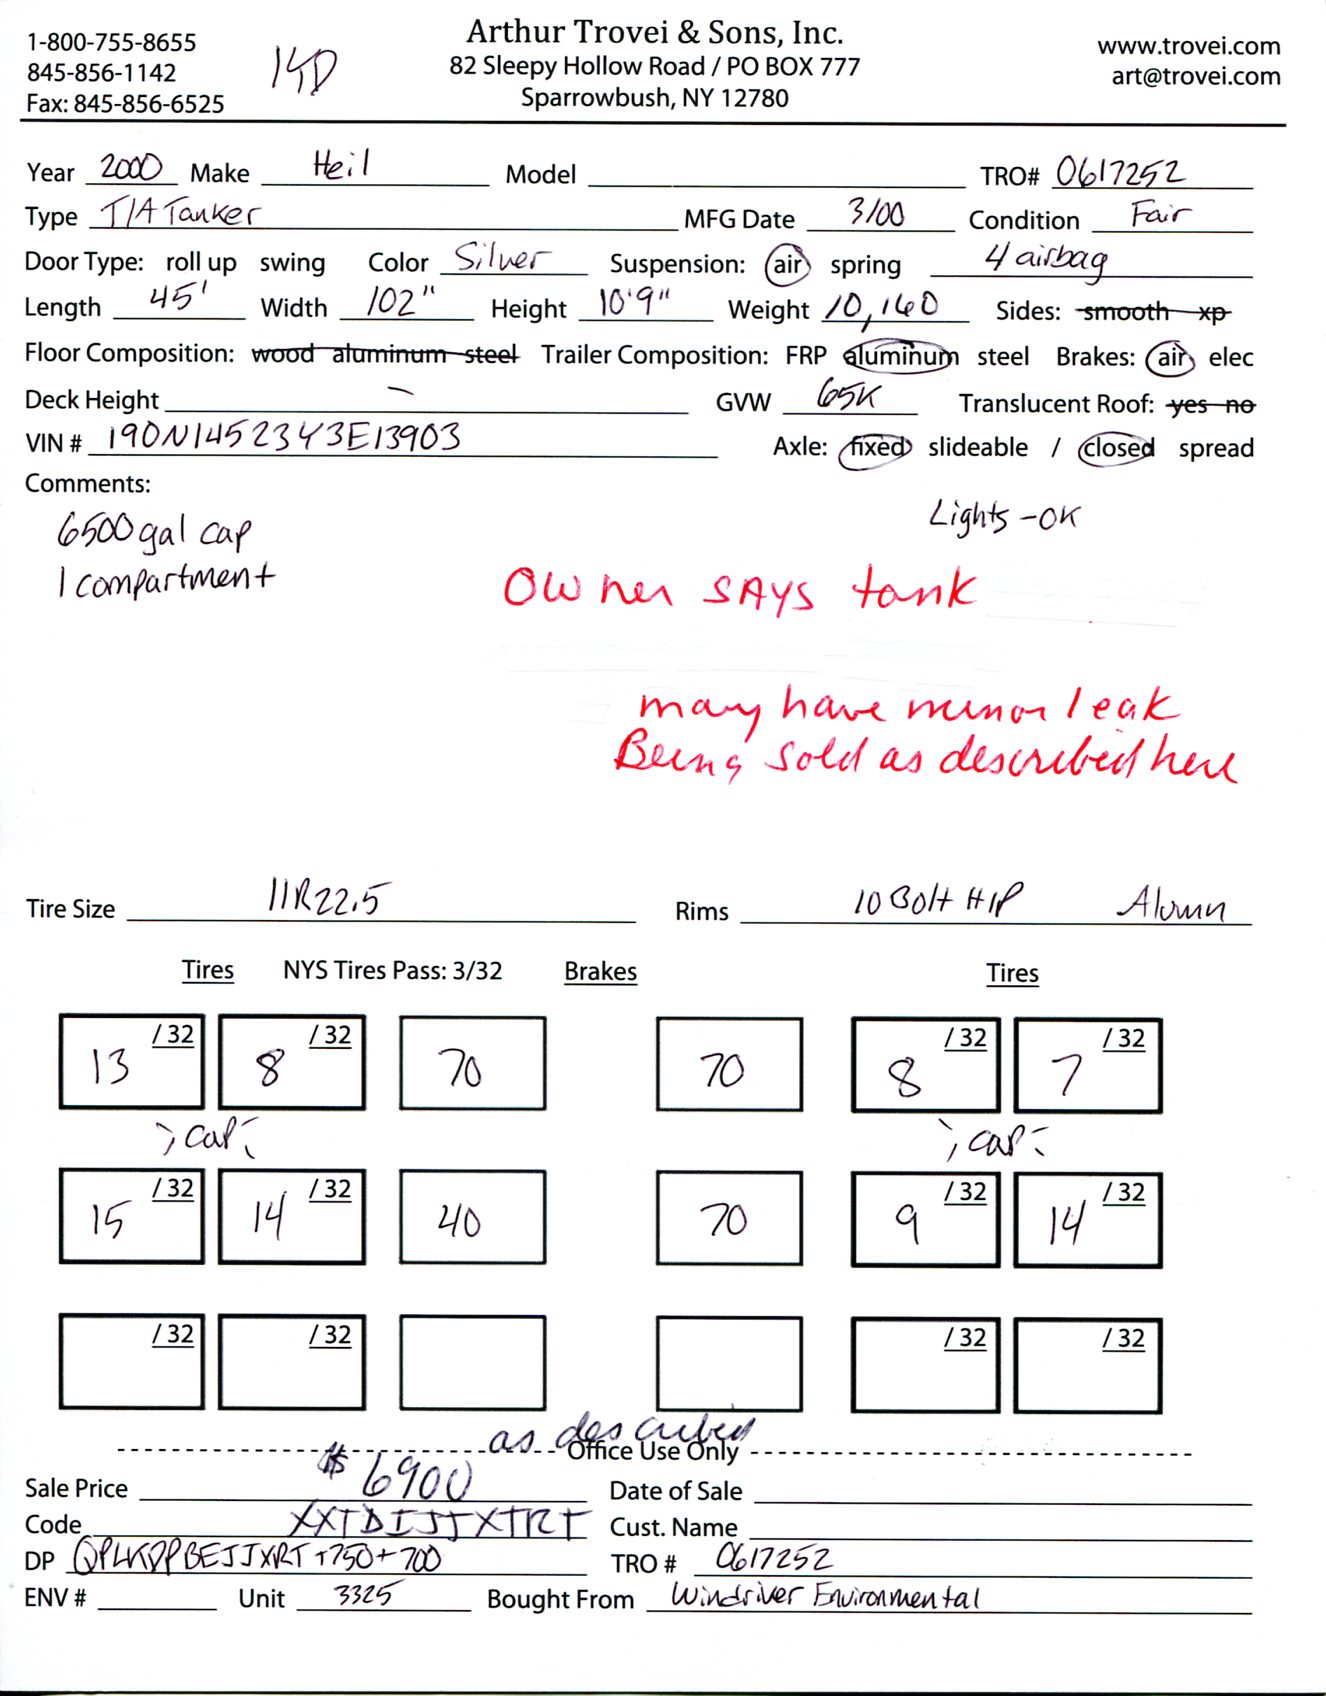 Arthur Trovei & Sons, Inc.
82 Sleepy Hollow Road / PO BOX 777
Sparrowbush, NY 12780
1-800-755-8655
845-856-1142
Fax: 845-856-6525
www.trovei.com
art@trovei.com
Year 2000 Make Heil Model TRO# 0617252
Type T/A Tanker MFG Date 3/00 Condition Fair
Door Type: roll up swing Color Silver Suspension: air spring 4 airbag
Length 45' Width 102" Height 10'9" Weight 10,160 Sides: smooth xp
Floor Composition: wood aluminum steel Trailer Composition: FRP aluminum steel Brakes: air elec
Deck Height – GVW 65K Translucent Roof: yes no
VIN # 190N1452343E13903 Axle: fixed slideable / closed spread
Comments:
6500 gal cap Lights - OK
1 compartment
Owner SAYS tank
may have minor leak
Being sold as described here
Tire Size 11R22.5 Rims 10 Bolt H/P Alumn
Tires NYS Tires Pass: 3/32 Brakes Tires
13 /32 8 /32 70 70 8 /32 7 /32
cap cap
15 /32 14 /32 40 70 9 /32 14 /32
/32 /32 /32 /32
as described
Office Use Only
Sale Price $6900 Date of Sale
Code XXTDIJJXTRT Cust. Name
DP QPLKDPBEJJXRT +750+700 TRO # 0617252
ENV # Unit 3325 Bought From Windriver Environmental